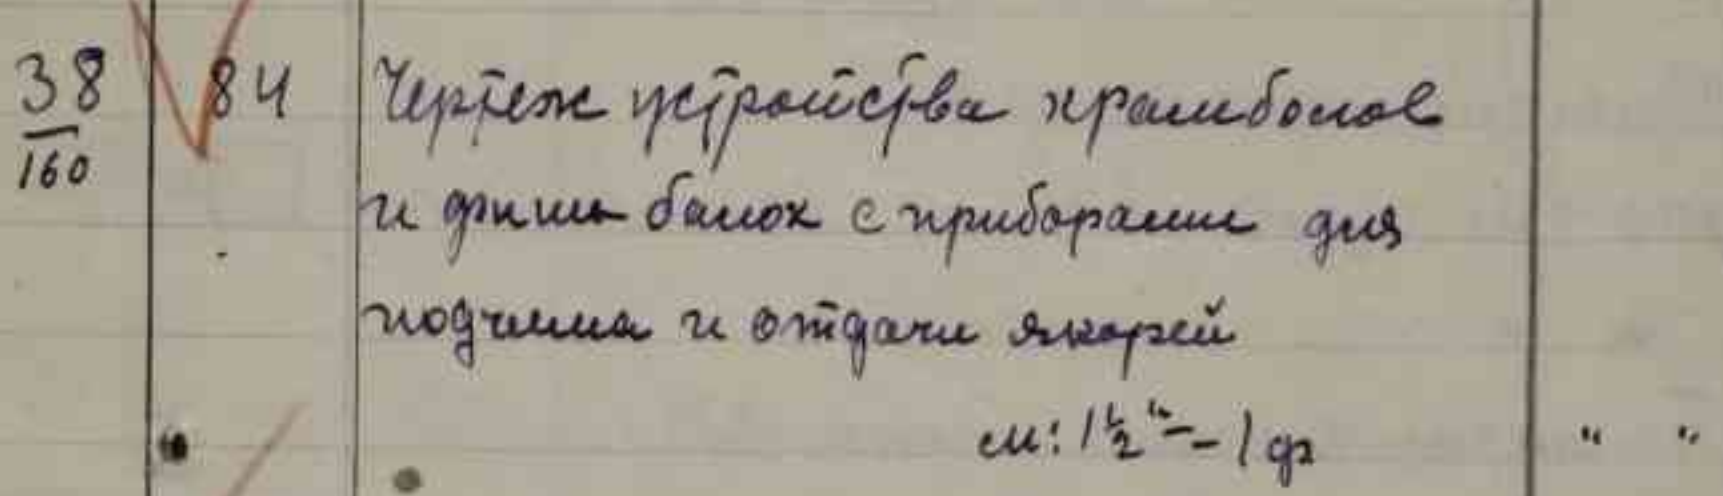 38 84 Чертеж устройства крамболов
160 и фишь балок с приборами для
подъема и отдачи якорей
м: 1 1/2" - 1 ф " "